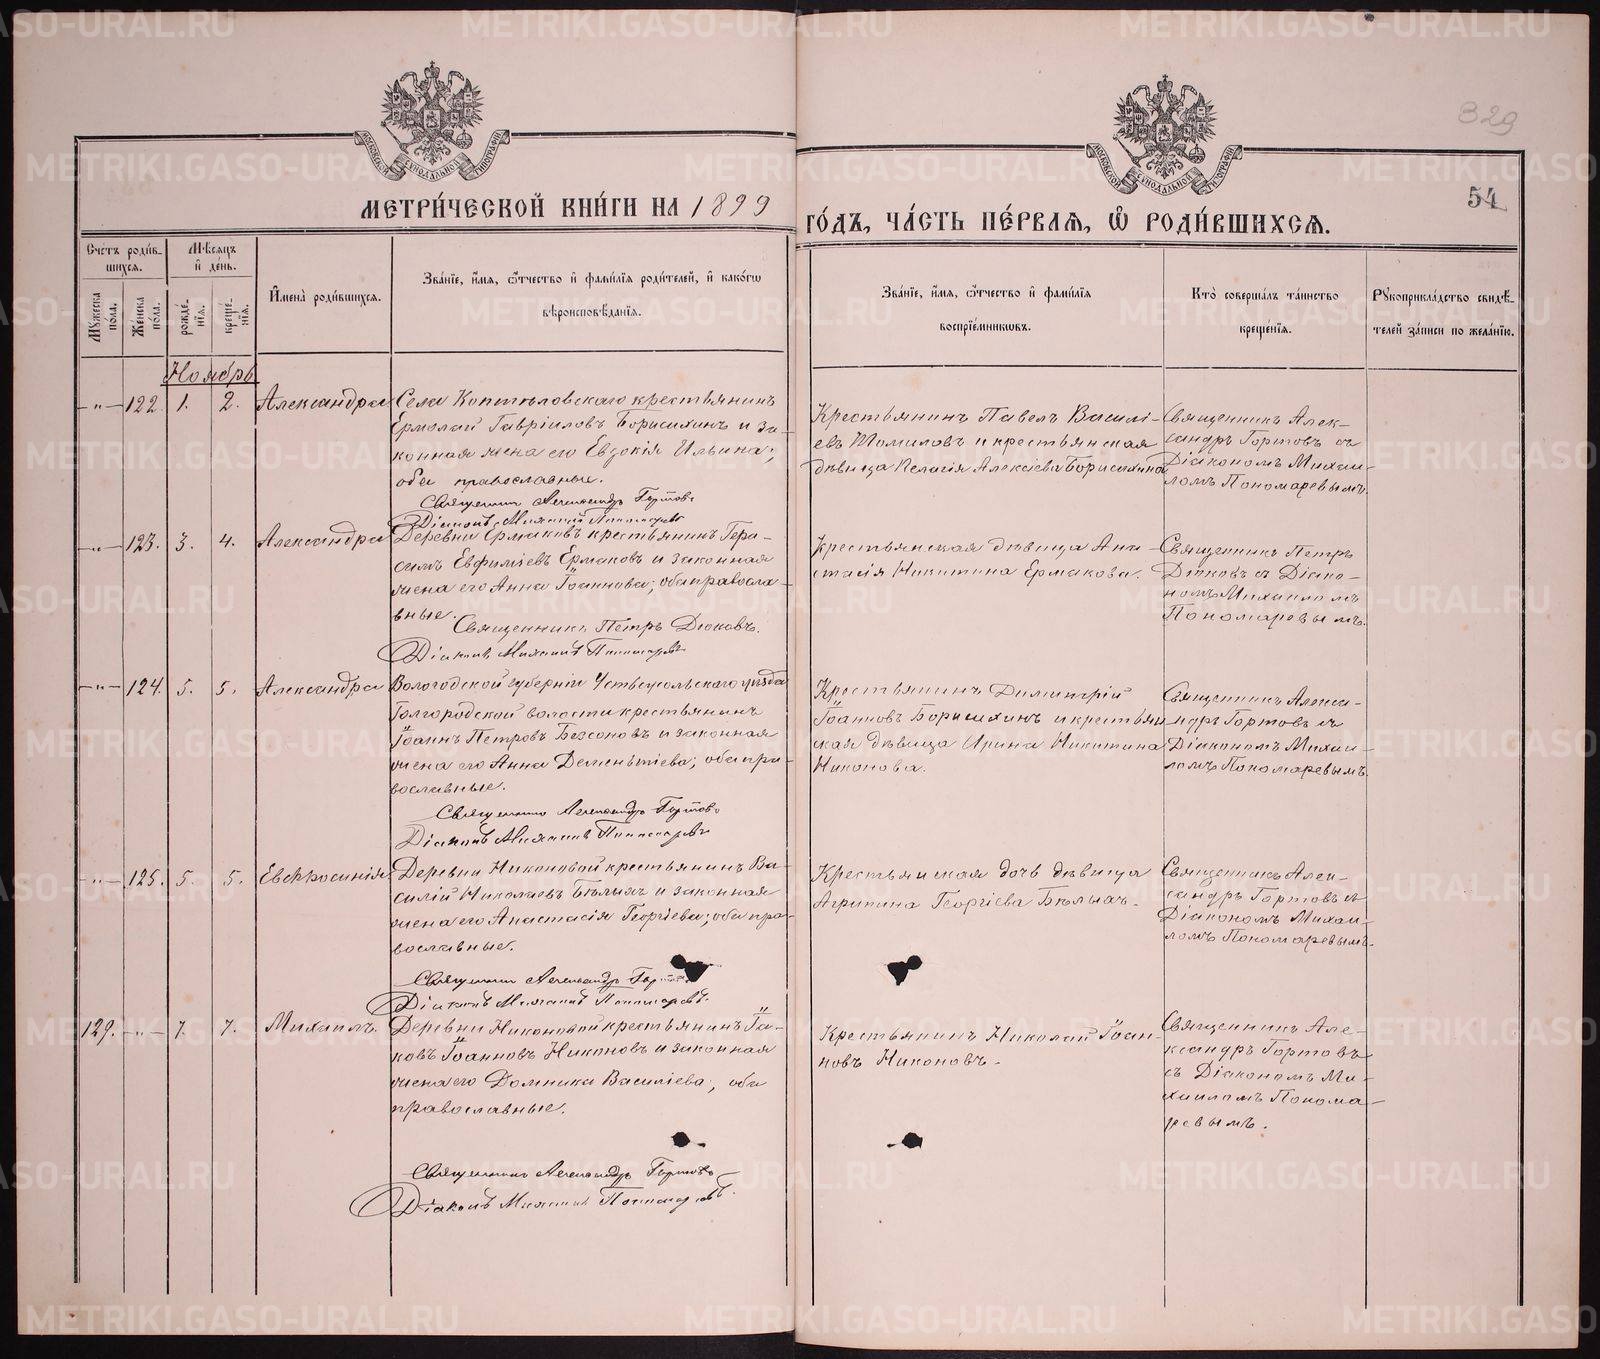 МЕТРИ́ЧЕСКОЙ КНИ́ГИ НА 1899
ГО́ДЪ, ЧА́СТЬ ПЕ́РВАѦ, Ѡ҆ РОДИ́ВШИХСѦ.
329
54
Сче́тъ роди́в-
шихсѧ.
Мѣ́сѧцъ
и҆ де́нь.
И҆мена̀ роди́вшихсѧ.
Зва́нїе, и҆́мѧ, ѻ҆́тчество и҆ фами́лїѧ роди́телей, и҆ како́гѡ
вѣроисповѣ́данїѧ.
Мꙋ́жеска
по́ла.
Же́нска
по́ла.
рожде́-
нїѧ.
креще́-
нїѧ.
Зва́нїе, и҆́мѧ, ѻ҆́тчество и҆ фами́лїѧ
воспрїе́мникѡвъ.
Кто̀ соверша́лъ та́инство
креще́нїѧ.
Рꙋкоприкла́дство свидѣ́-
телей за́писи по жела́нїю.
Ноябрь
-"- 122. 1. 2. Александра
Села Коптѣловскаго крестьянинъ
Ермолай Гавріиловъ Борисихинъ и за-
конная жена его Евдокія Ильина;
оба православные.
Священникъ Александръ Гортовъ
Діаконъ Михаилъ Пономаревъ
Крестьянинъ Павелъ Василі-
евъ Шомиловъ и крестьянская
дѣвица Пелагія Алексіева Борисихина
Священникъ Алек-
сандръ Гортовъ съ
Діакономъ Михаи-
ломъ Пономаревымъ.
-"- 123. 3. 4. Александра
Деревни Ермаковъ крестьянинъ Гера-
симъ Евфиміевъ Ермаковъ и законная
жена его Анна Іоаннова; оба правосла-
вные.
Священникъ Петръ Дюковъ.
Діаконъ Михаилъ Пономаревъ
Крестьянская дѣвица Ана-
стасія Никитина Ермакова.
Священникъ Петръ
Дюковъ съ Діако-
номъ Михаиломъ
Пономаревымъ.
-"- 124. 5. 5. Александра
Вологодской губерніи Устьсысольскаго уѣзда
волости крестьянинъ
Іоаннъ Петровъ Безсоновъ и законная
жена его Анна Дементіева; оба пра-
вославные.
Священникъ Александръ Гортовъ
Діаконъ Михаилъ Пономаревъ
Крестьянинъ Димитрій
Іоанновъ Борисихинъ и крестьян
ская дѣвица Ирина Никитина
Никонова.
Священникъ Алекса-
ндръ Гортовъ съ
Діакономъ Михаи-
ломъ Пономаревымъ.
-"- 125. 5. 5. Евфросинія
Деревни Никоновой крестьянинъ Ва-
силій Николаевъ Бѣлыхъ и законная
жена его Анастасія Георгіева; оба пра-
вославные.
Священникъ Александръ
Діаконъ Михаилъ Пономаревъ.
Крестьянская дочь дѣвица
Агрипина Георгіева Бѣлыхъ.
Священникъ Алек-
сандръ Гортовъ съ
Діакономъ Михаи-
ломъ Пономаревымъ.
129. -"- 7. 7. Михаилъ.
Деревни Никоновой крестьянинъ Іа-
ковъ Іоанновъ Никоновъ и законная
жена его Домника Василіева; оба
православные.
Священникъ Александръ Гортовъ
Діаконъ Михаилъ Пономаревъ.
Крестьянинъ Николай Іоан-
новъ Никоновъ.
Священникъ Але-
ксандръ Гортовъ
съ Діакономъ Ми-
хаиломъ Понома-
ревымъ.
METRIKI.GASO-URAL.RU